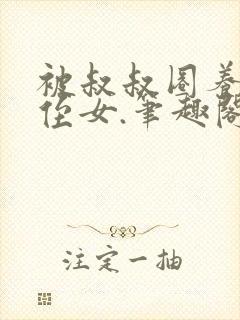 被叔叔圈养
侄女.笔趣阁
注定一抽